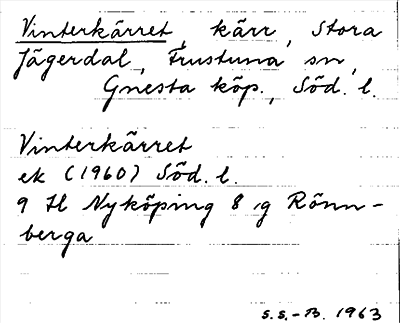 Vinterkärret, kärr, Stora
Jägerdal, Frustuna sn,
Gnesta köp., Söd. l.
Vinterkärret
ek (1960) Söd. l.
9 H Nyköping 8 g Rönn-
berga
S.S.-B. 1963